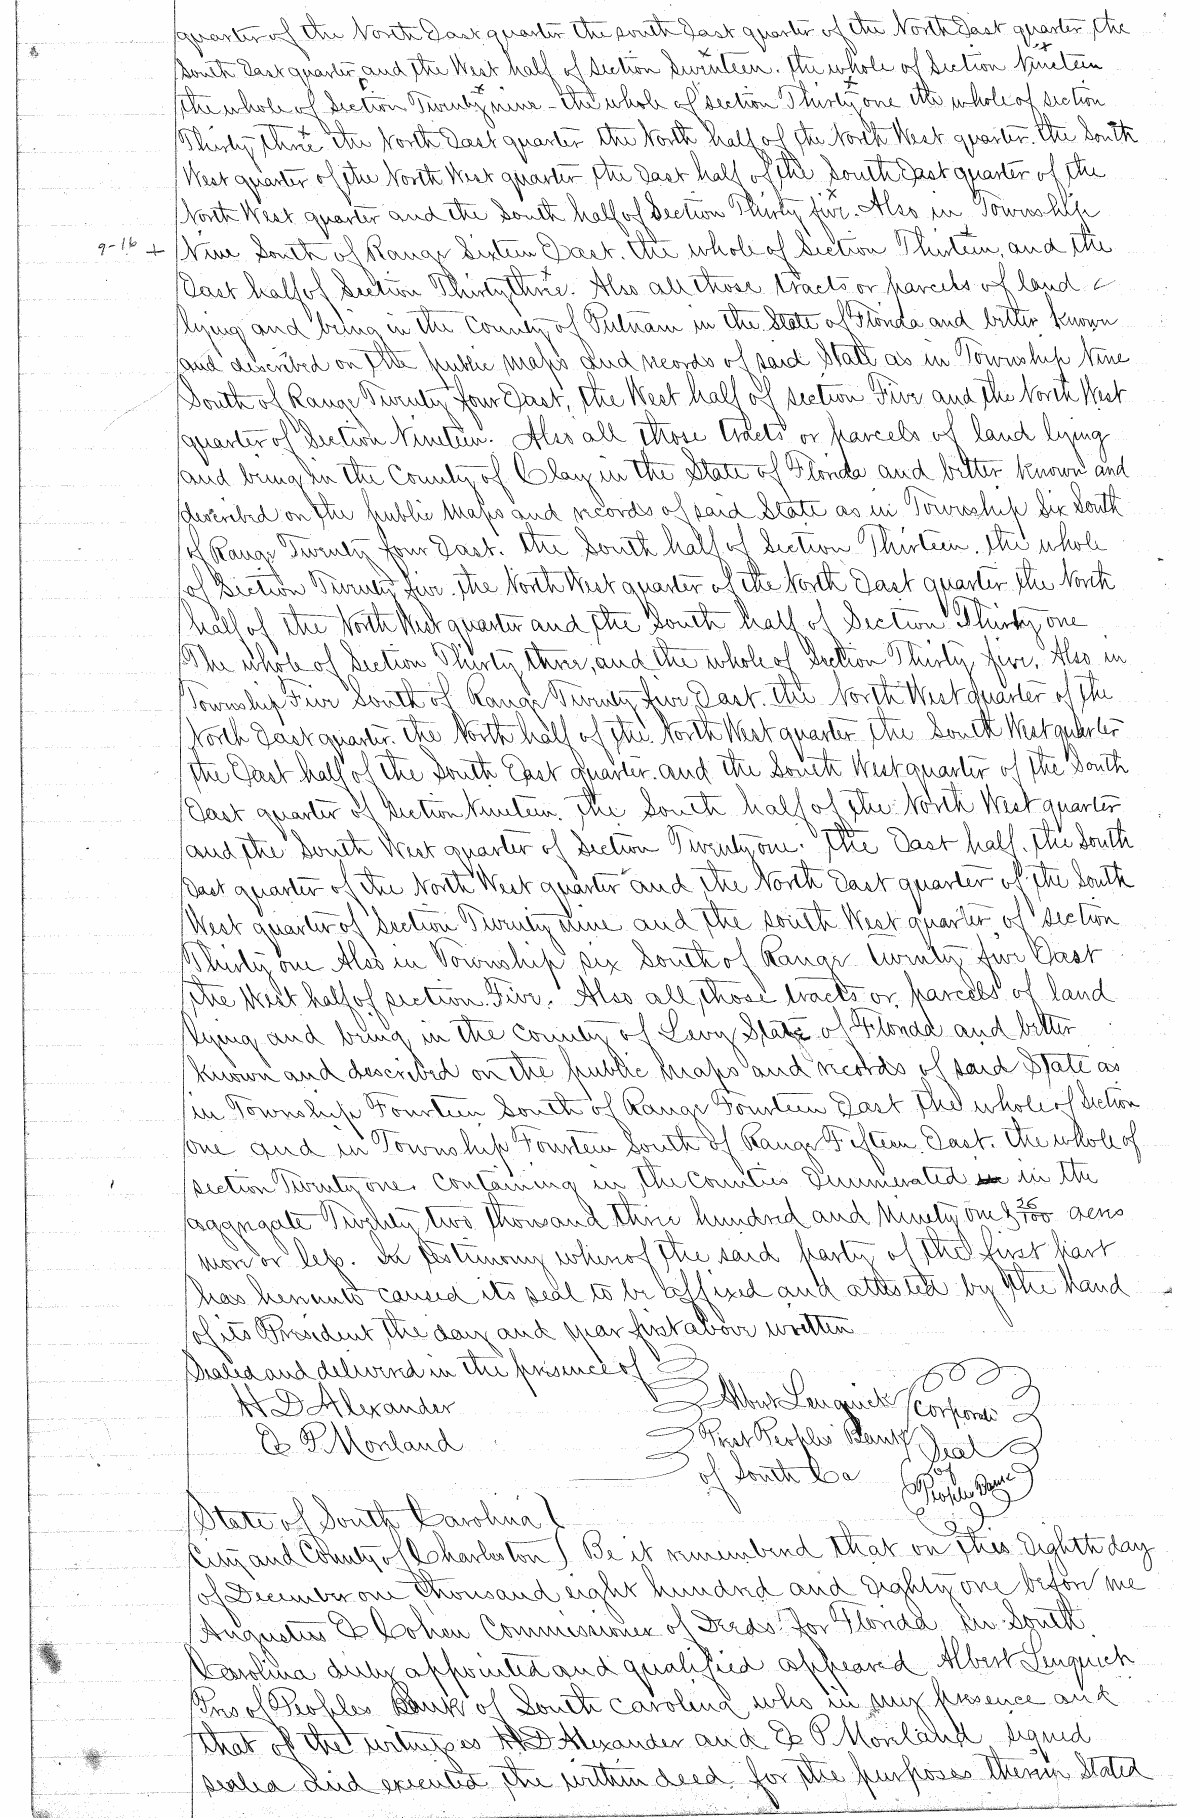 quarter of the North East quarter the south East quarter of the North East quarter, the
South East quarter and the West half of Section Seventeen. the whole of Section Nineteen
the whole of Section Twenty nine - the whole of section Thirty one the whole of section
Thirty three the North East quarter the North half of the North West quarter. the South
West quarter of the North West quarter the East half of the South East quarter of the
North West quarter and the South half of Section Thirty five. Also in Township
9-16 + Nine South of Range Sixteen East. the whole of Section Thirteen, and the
East half of Section Thirty three. Also all those tracts or parcels of land
lying and being in the County of Putnam in the State of Florida and better known
and described on the public maps and records of said State as in Township Nine
South of Range Twenty four East, the West half of section Five and the North West
quarter of Section Nineteen. Also all those tracts or parcels of land lying
and being in the County of Clay in the State of Florida and better known and
described on the public maps and records of said State as in Township Six South
of Range Twenty four East. the South half of Section Thirteen. the whole
of Section Twenty five. the North West quarter of the North East quarter the North
half of the North West quarter and the South half of Section Thirty one
The whole of Section Thirty three, and the whole of Section Thirty five. Also in
Township Five South of Range Twenty five East. the North West quarter of the
North East quarter. the North half of the North West quarter the South West quarter
the East half of the South East quarter. and the South West quarter of the South
East quarter of Section Nineteen. The South half of the North West quarter
and the South West quarter of Section Twenty one. The East half. the South
East quarter of the North West quarter and the North East quarter of the South
West quarter of Section Twenty nine and the south West quarter of section
Thirty one Also in Township six South of Range twenty five East
the West half of section Five. Also all those tracts or parcels of land
lying and being in the County of Levy State of Florida and better
known and described on the public maps and records of said State as
in Township Fourteen South of Range Fourteen East the whole of Section
one and in Township Fourteen South of Range Fifteen East. the whole of
section Twenty one. Containing in the Counties Enumerated in the
aggregate Twenty two thousand three hundred and Ninety one & 26/100 acres
more or less. In testimony whereof the said party of the first part
has hereunto caused its seal to be affixed and attested by the hand
of its President the day and year first above written
Sealed and delivered in the presence of
H D Alexander Albert Lengnick Corporate
E P Moreland Prest Peoples Bank Seal
of South Ca of Peoples Bank
State of South Carolina
City and County of Charleston Be it remembered that on this Eighth day
of December one thousand eight hundred and Eighty one before me
Augustus E Cohen Commissioner of Deeds for Florida in South
Carolina duly appointed and qualified appeared Albert Lengnick
Pres of Peoples Bank of South Carolina who in my presence and
that of the witnesses H D Alexander and E P Moreland signed
sealed and executed the within deed for the purposes therein Stated